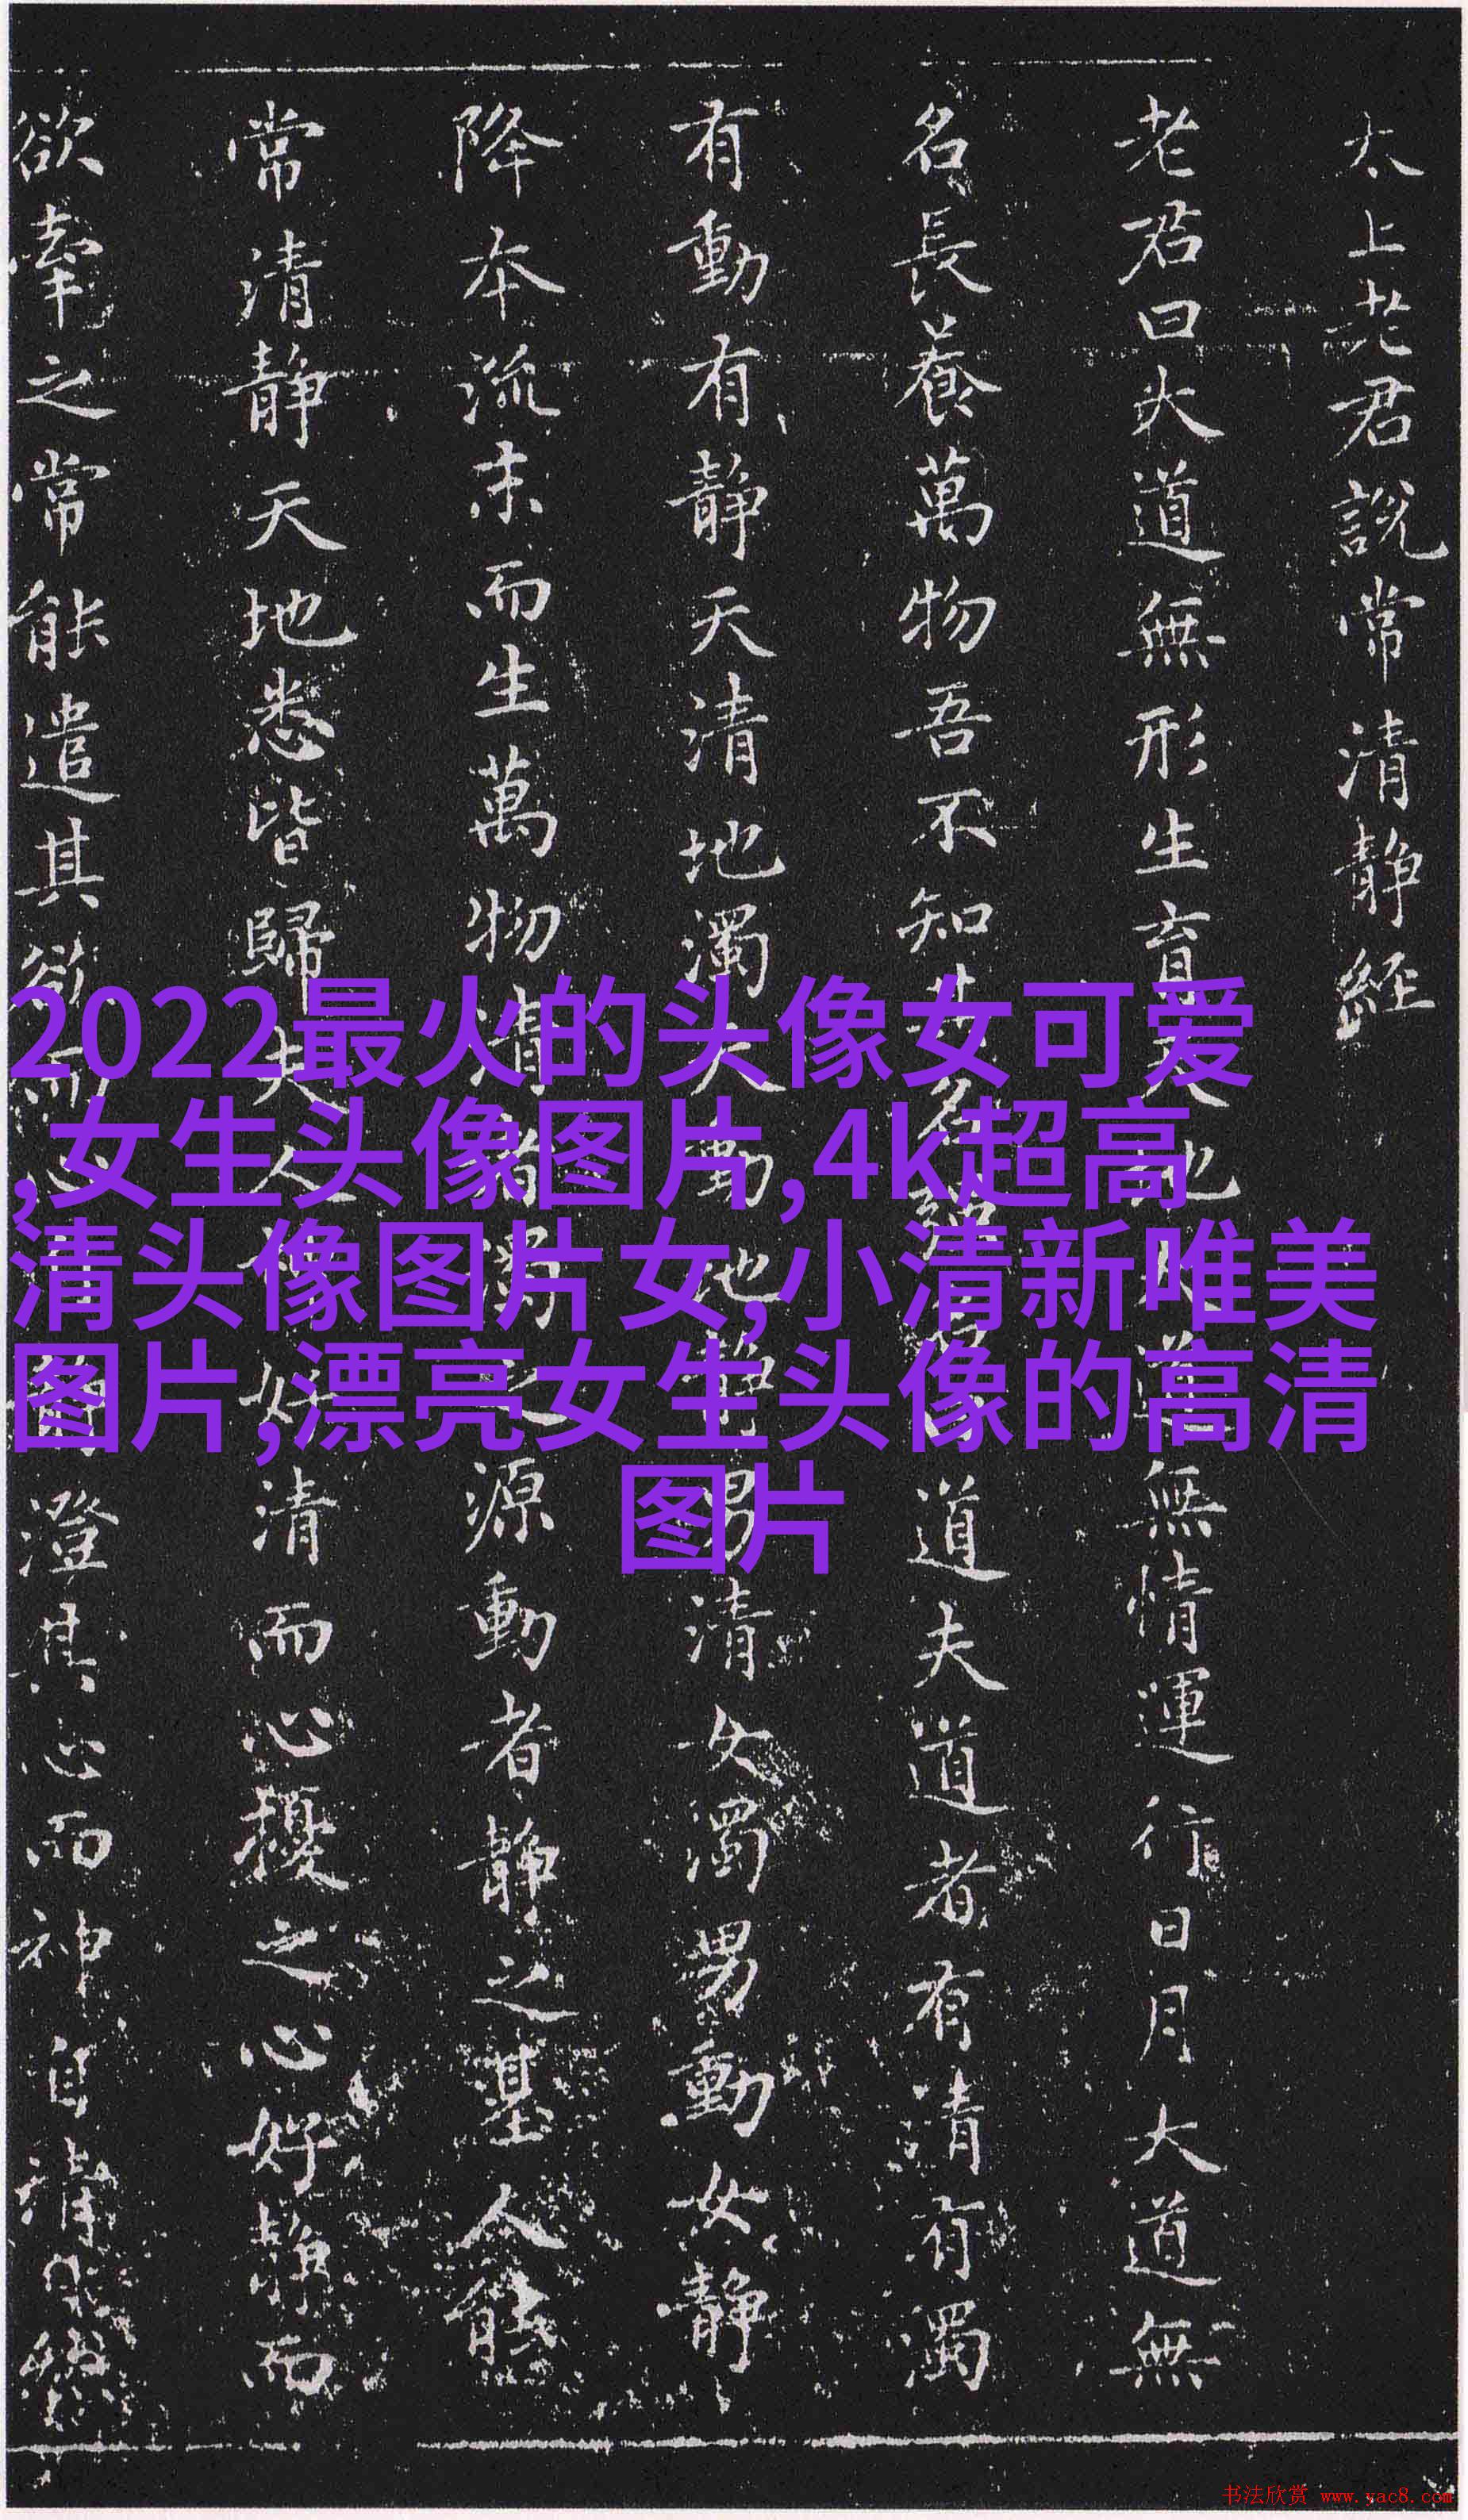 太上老君說常清静經
老君曰大道無形生育天地大道無情運行日月大道無
名長養萬物吾不知其名強名曰道夫道者有清有濁
有動有静天清地濁天動地静男清女濁男動女静
降本流末而生萬物清者濁之源動者静之基人能
常清静天地悉皆歸夫人神好清而心擾之心好静而
欲牽之常能遣其欲而心自静澄其心而神自清
2022最火的头像女可爱
,女生头像图片,4k超高
清头像图片女,小清新唯美
图片,漂亮女生头像的高清
图片
书法欣赏 www.yac8.com